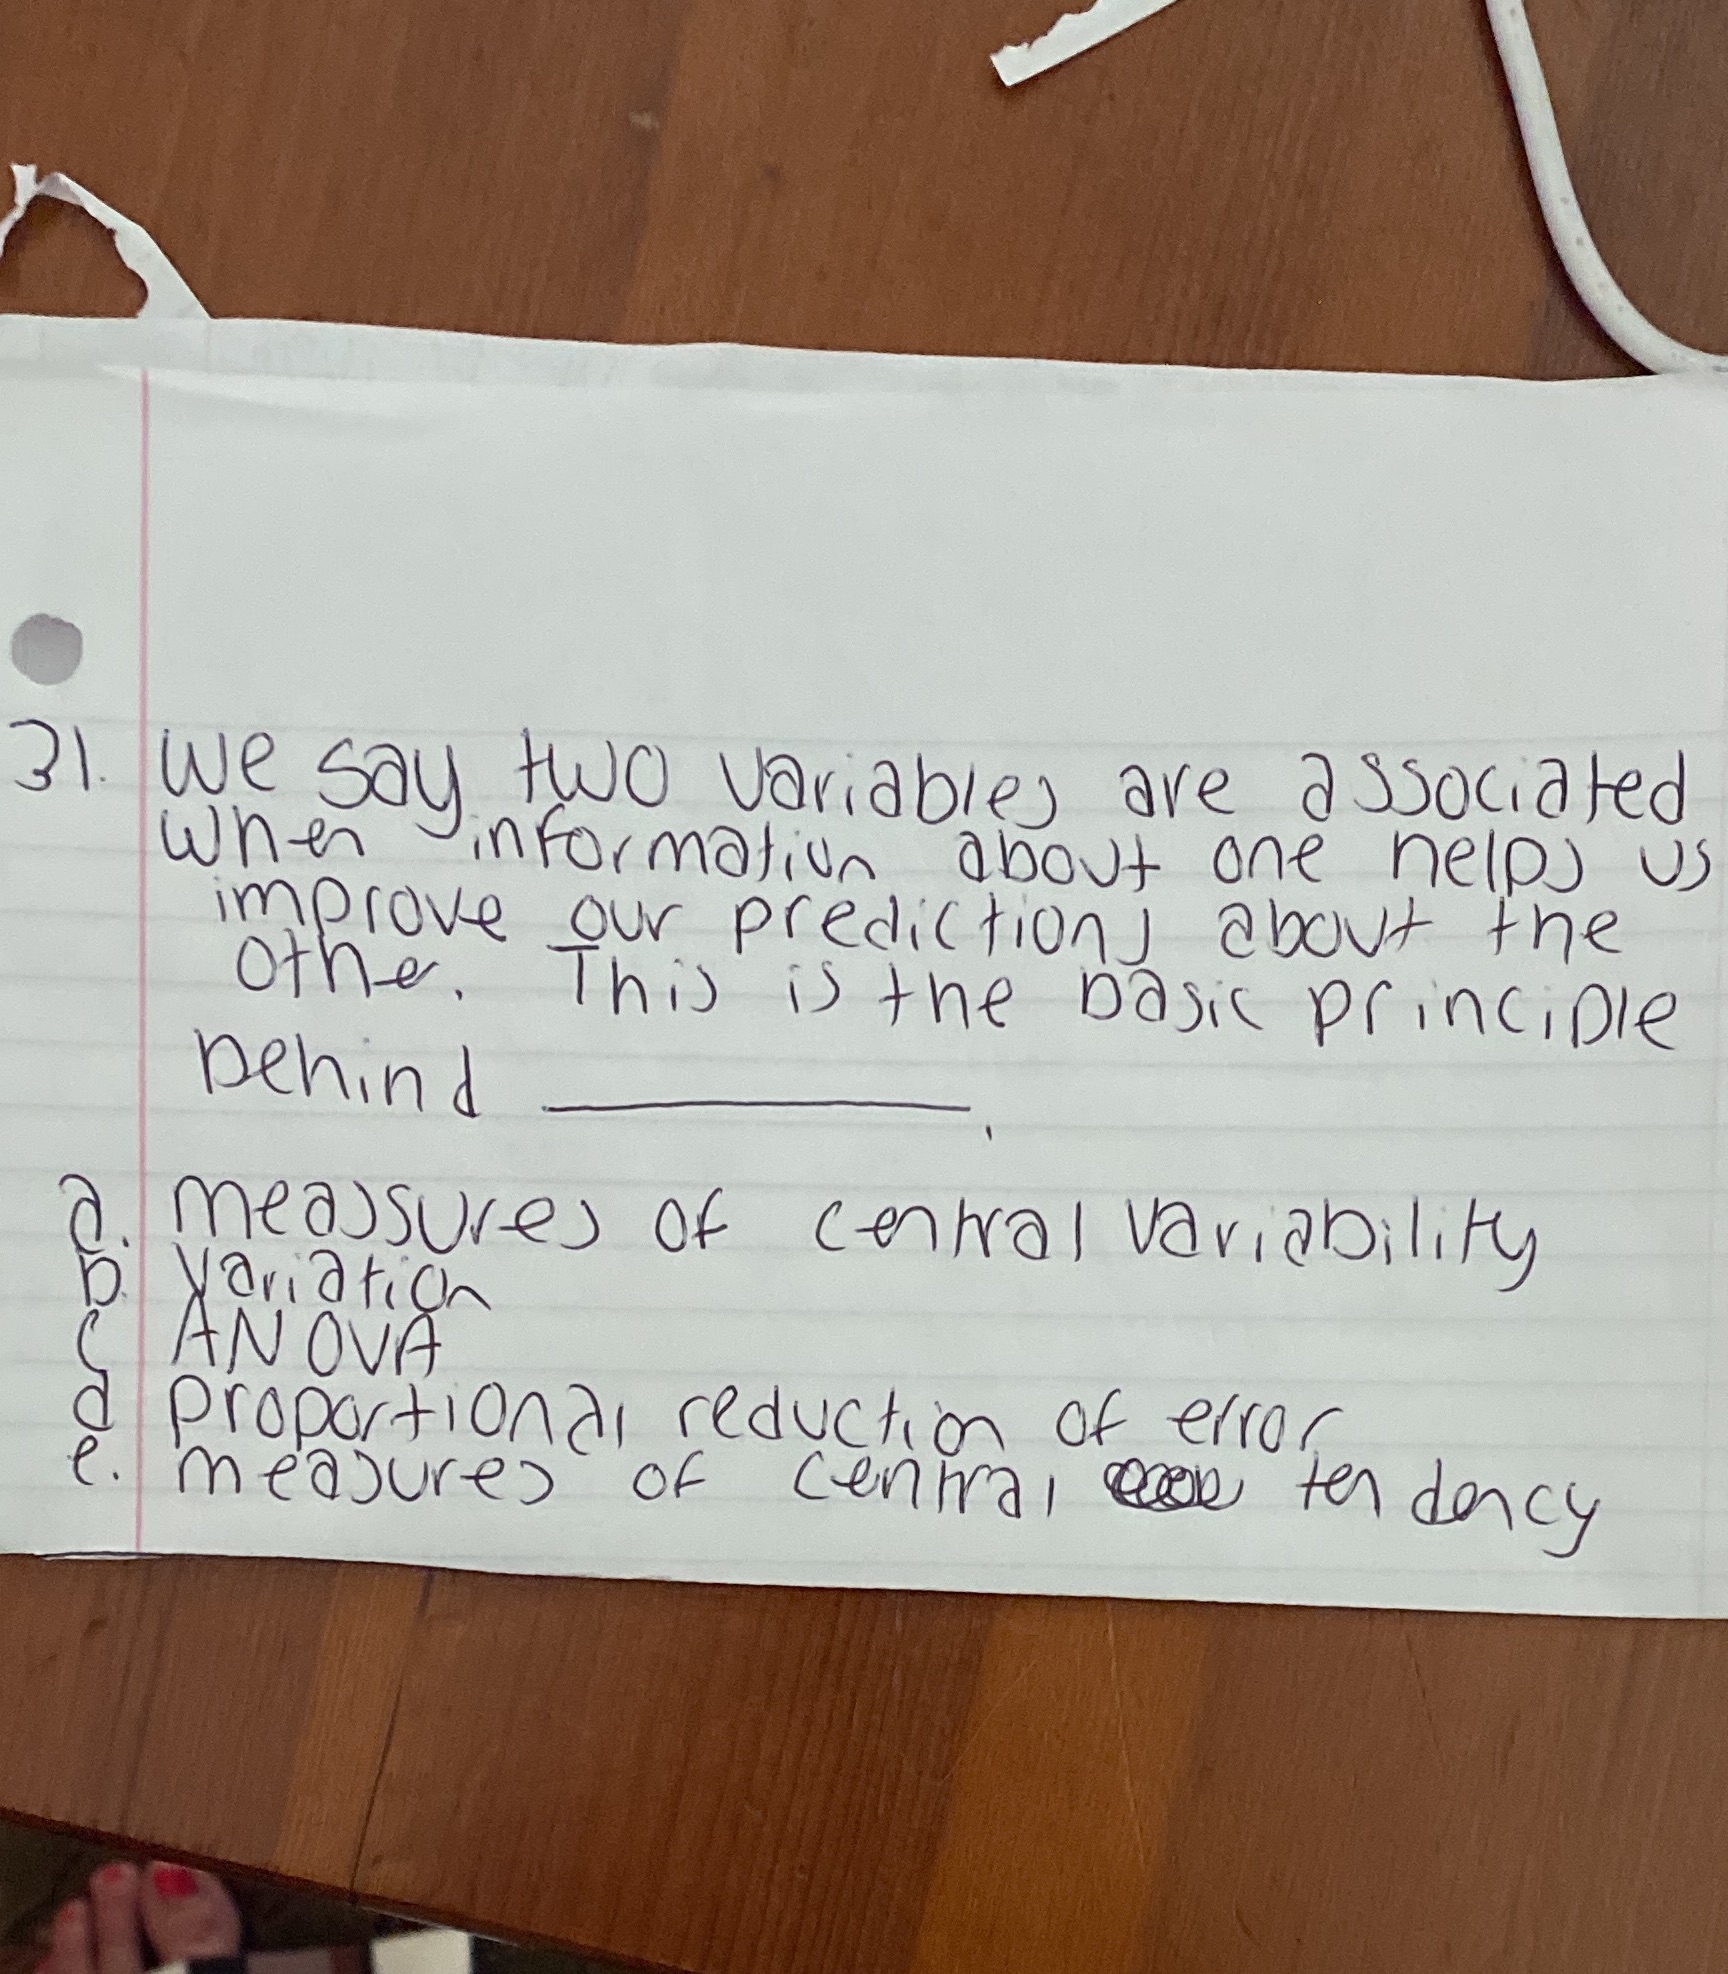 31. We say two variables are associated
when information about one helps us
improve our predictions about the
other. This is the basic principle
behind __________.
a. meassures of central variability
b. variation
c ANOVA
d proportional reduction of error
e. measures of central tendency